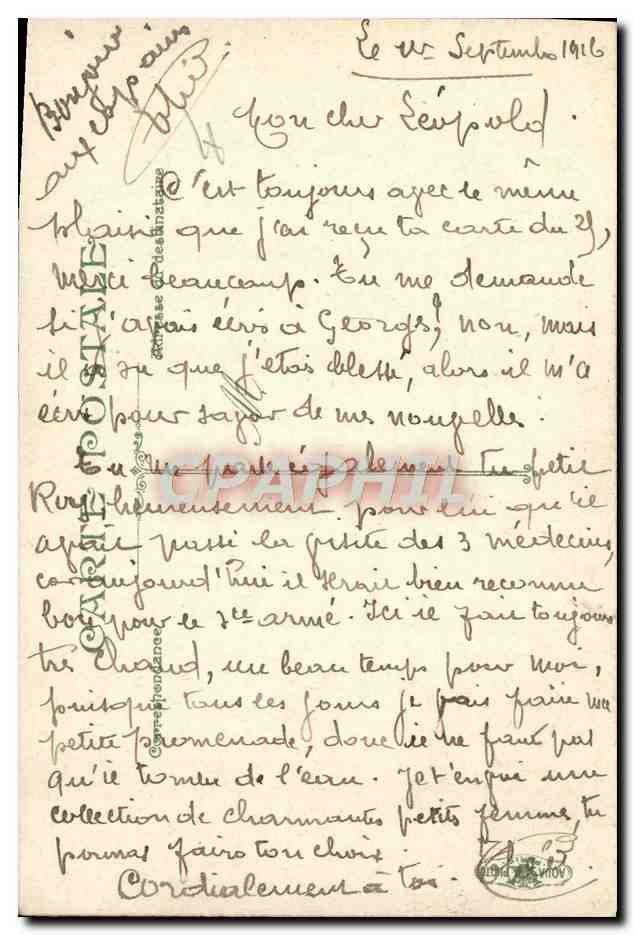 Bonjour
aux copains
Le 1er Septembre 1916
Mon cher Léopold.
C'est toujours avec le même
plaisir que j'ai reçu ta carte du 25,
Merci beaucoup. Tu me demande
si j'avais écris à Georges, non, mais
il a su que j'étais blessé, alors il m'a
écris pour savoir de mes nouvelles.
Tu me parle également du petit
heureusement pour lui qu'il
avait passé la visite des 3 médecins,
car aujourd'hui il serait bien reconnu
bon pour le armé. Ici il fait toujours
très chaud, un beau temps pour moi,
puisque tous les jours je vais faire ma
petite promenade, donc il ne faut pas
qu'il tombe de l'eau. Je t'envoi une
collection de charmantes petites femmes, tu
pourras faire ton choix.
Cordialement à toi.
CARTE POSTALE
Correspondance
Adresse du destinataire
CPAPHIL
AQUA PHOTO